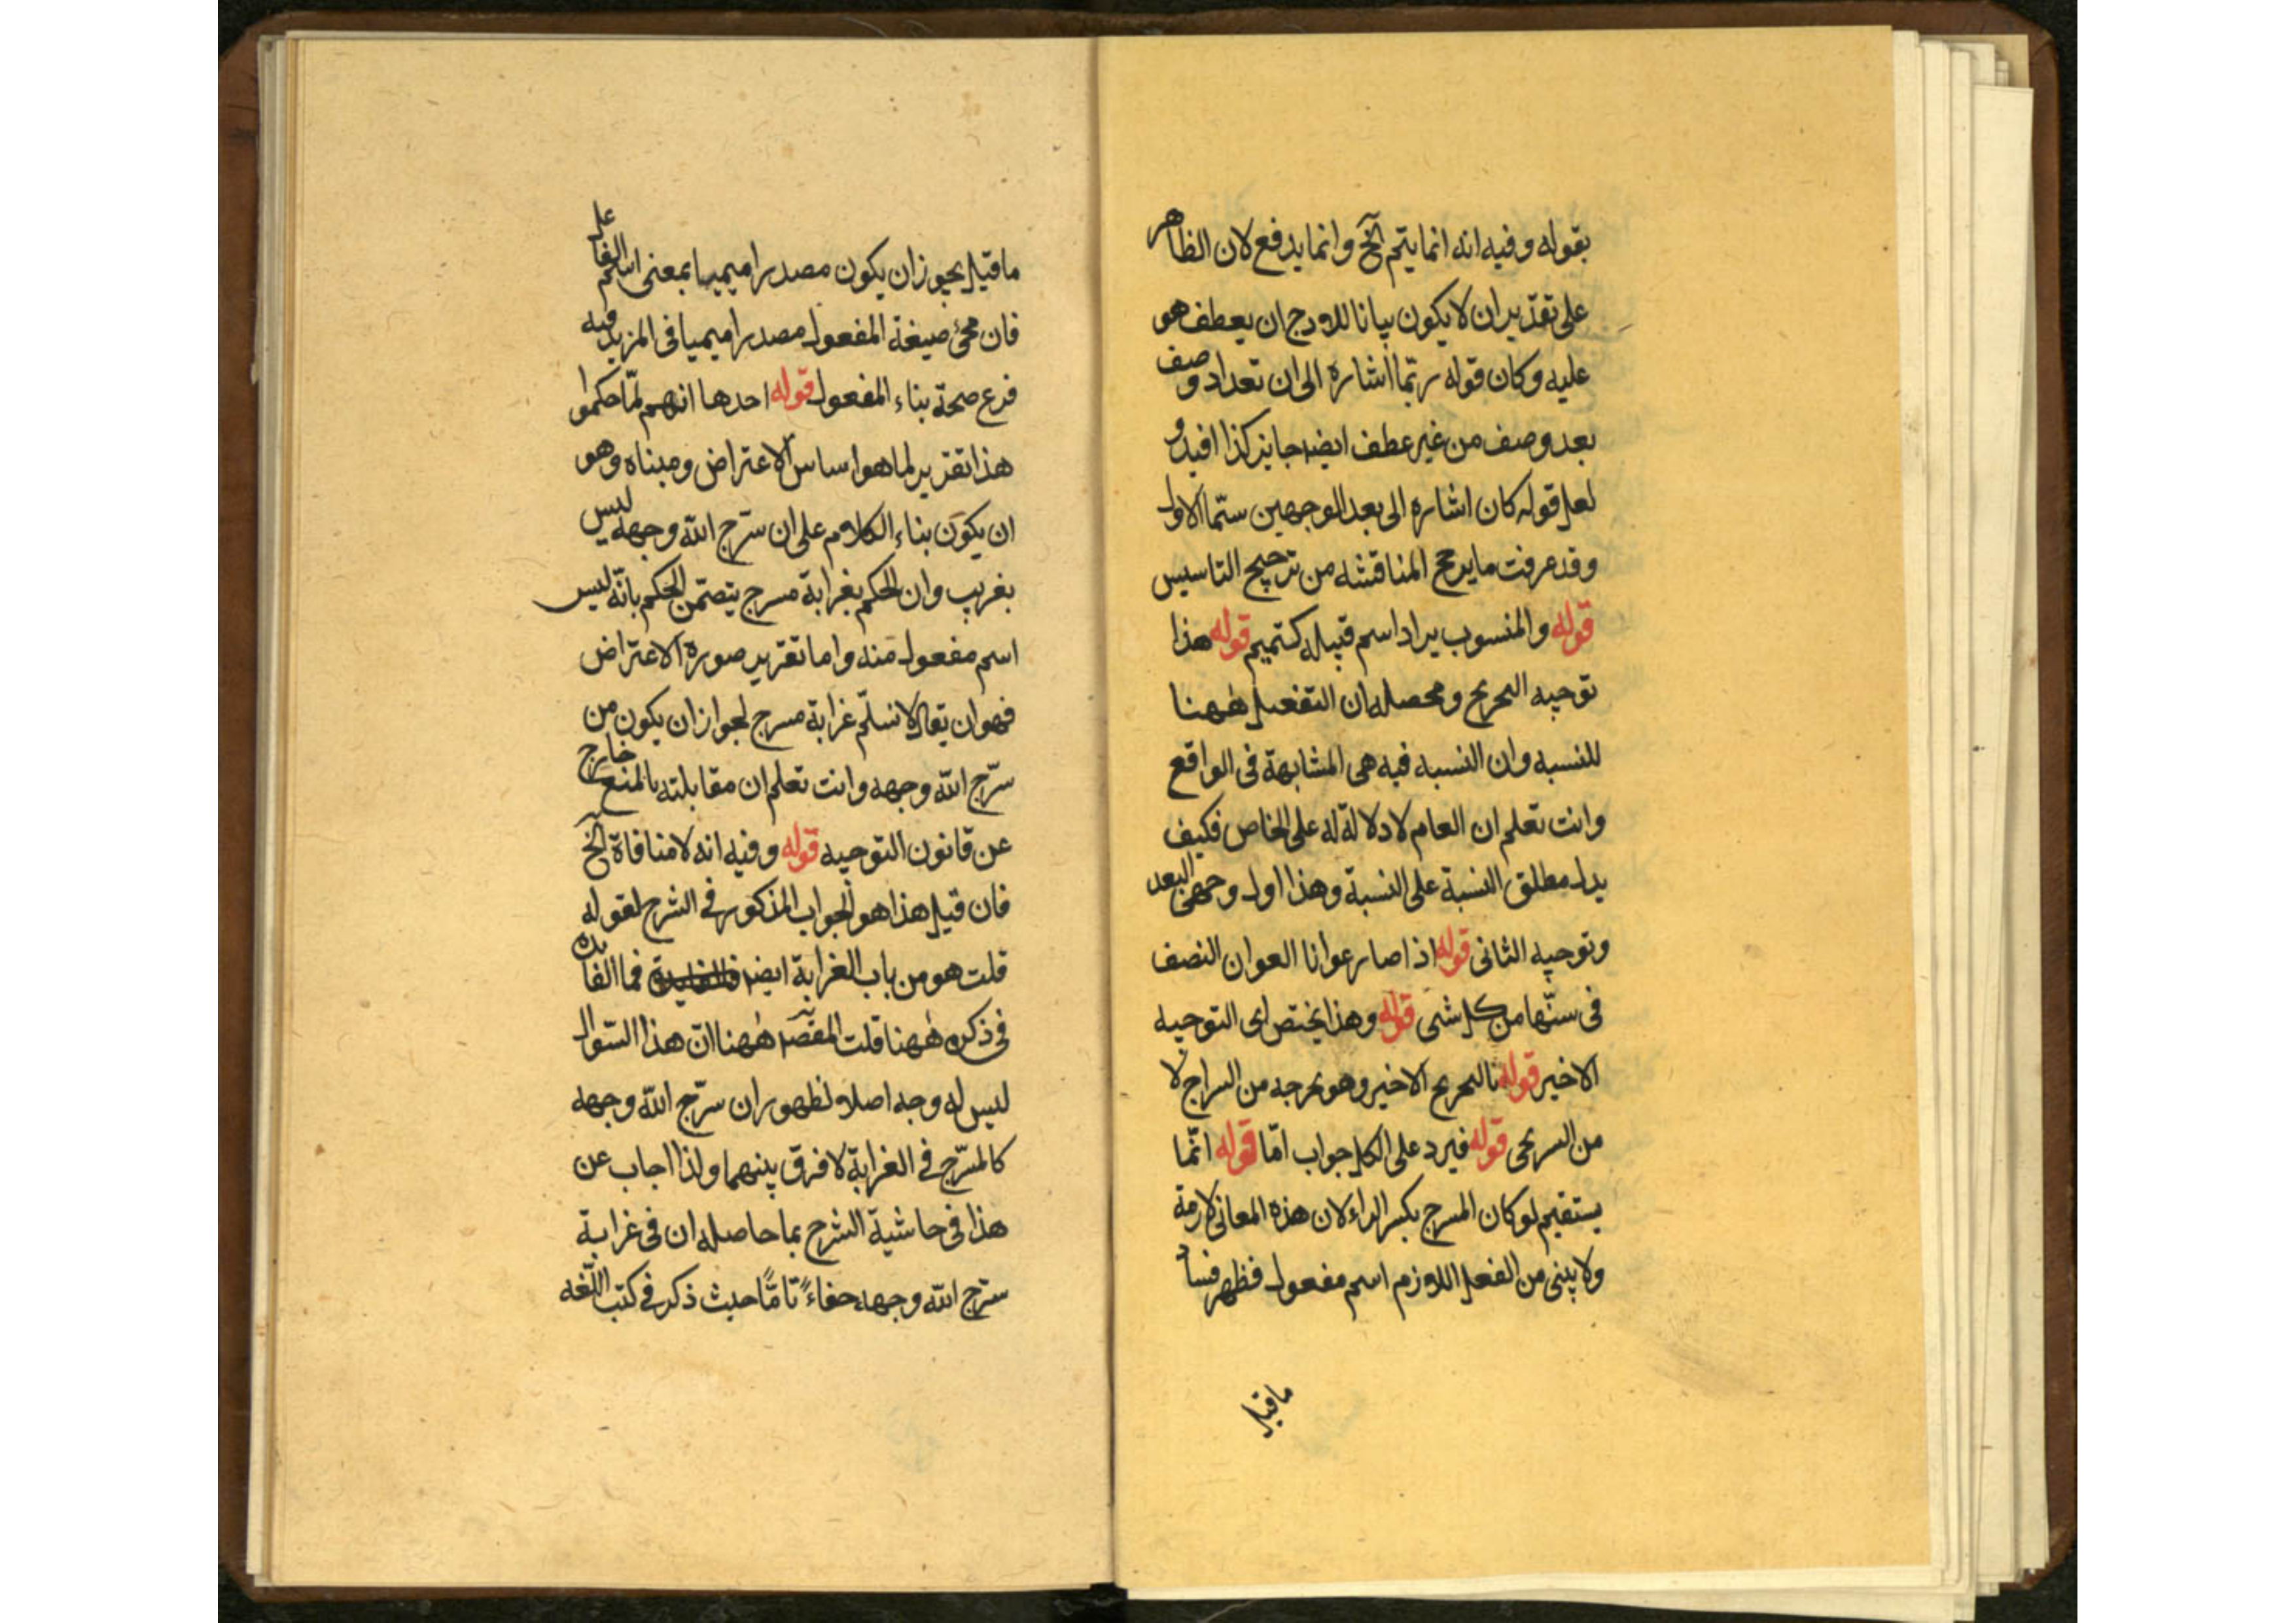 بقوله وفيه انه انما يتم الخ وانما يدفع لان الظاهر
على تقدير ان لا يكون بيانا للدرج ان يعطف هو
عليه وكان قوله ربما اشارة الى ان تعداد وصف
بعد وصف من غير عطف ايضا جايز كذا افيد و
لعل قوله كان اشارة الى بعد الوجهين ستما الاول
وقد عرفت ما يرجح المناقشه من ترجيح التاسيس
قوله والمنسوب يراد اسم قبيله كتميم قوله هذا
توجيه التحريج ومحصله ان التفعيل ههنا
للنسبه وان النسبه فيه هى المشابهة فى الواقع
وانت تعلم ان العام لا دلالة له على الخاص فكيف
يدل مطلق النسبة على النسبة وهذا اول وجهى البعد
وتوجيه الثانى قوله اذا صار عوانا العوان النصف
فى سنّها من كل شى قوله وهذا يختص اى التوجيه
الاخير قوله التحريج الاخير وهو تخرجه من السراج لا
من السريجى قوله فيرد على الكل جواب امّا قوله انّما
يستقيم لو كان المسرج بكسر الراء لان هذه المعانى لازمة
ولا يبنى من الفعل اللازم اسم مفعول فظهر فساد
ما قيل
ما قيل يجوز ان يكون مصدرا ميميا بمعنى اسم الفاعل
فان مجئ صيغة المفعول مصدرا ميميا فى المزيد فيه
فرع صحة بناء المفعول قوله احدها انهم لمّا حكموا
هذا تقرير لما هو اساس الاعتراض ومبناه وهو
ان يكون بناء الكلام على ان سرّج الله وجهه ليس
بغريب وان الحكم بغرابة مسرج يتضمن الحكم بانّه ليس
اسم مفعول منه واما تقرير صورة الاعتراض
فهو ان يقال لا نسلّم غرابة مسرج لجواز ان يكون من
سرّج الله وجهه وانت تعلم ان مقابلته بالمنع خارج
عن قانون التوجيه قوله وفيه انه لا منافاة الخ
فان قيل هذا هو الجواب المذكور فى الشرح لقوله
قلت هو من باب الغرابة ايضا فما الفايده
فى ذكره ههنا قلت المقصد ههنا انّ هذا السّوال
ليس له وجه اصلا لظهور ان سرّج الله وجهه
كالمسرّج فى الغرابة لا فرق بينهما ولذا اجاب عن
هذا فى حاشية الشرح بما حاصله ان فى غرابة
سرّج الله وجهه خفاءً تامًّا حيث ذكر فى كتب اللّغه